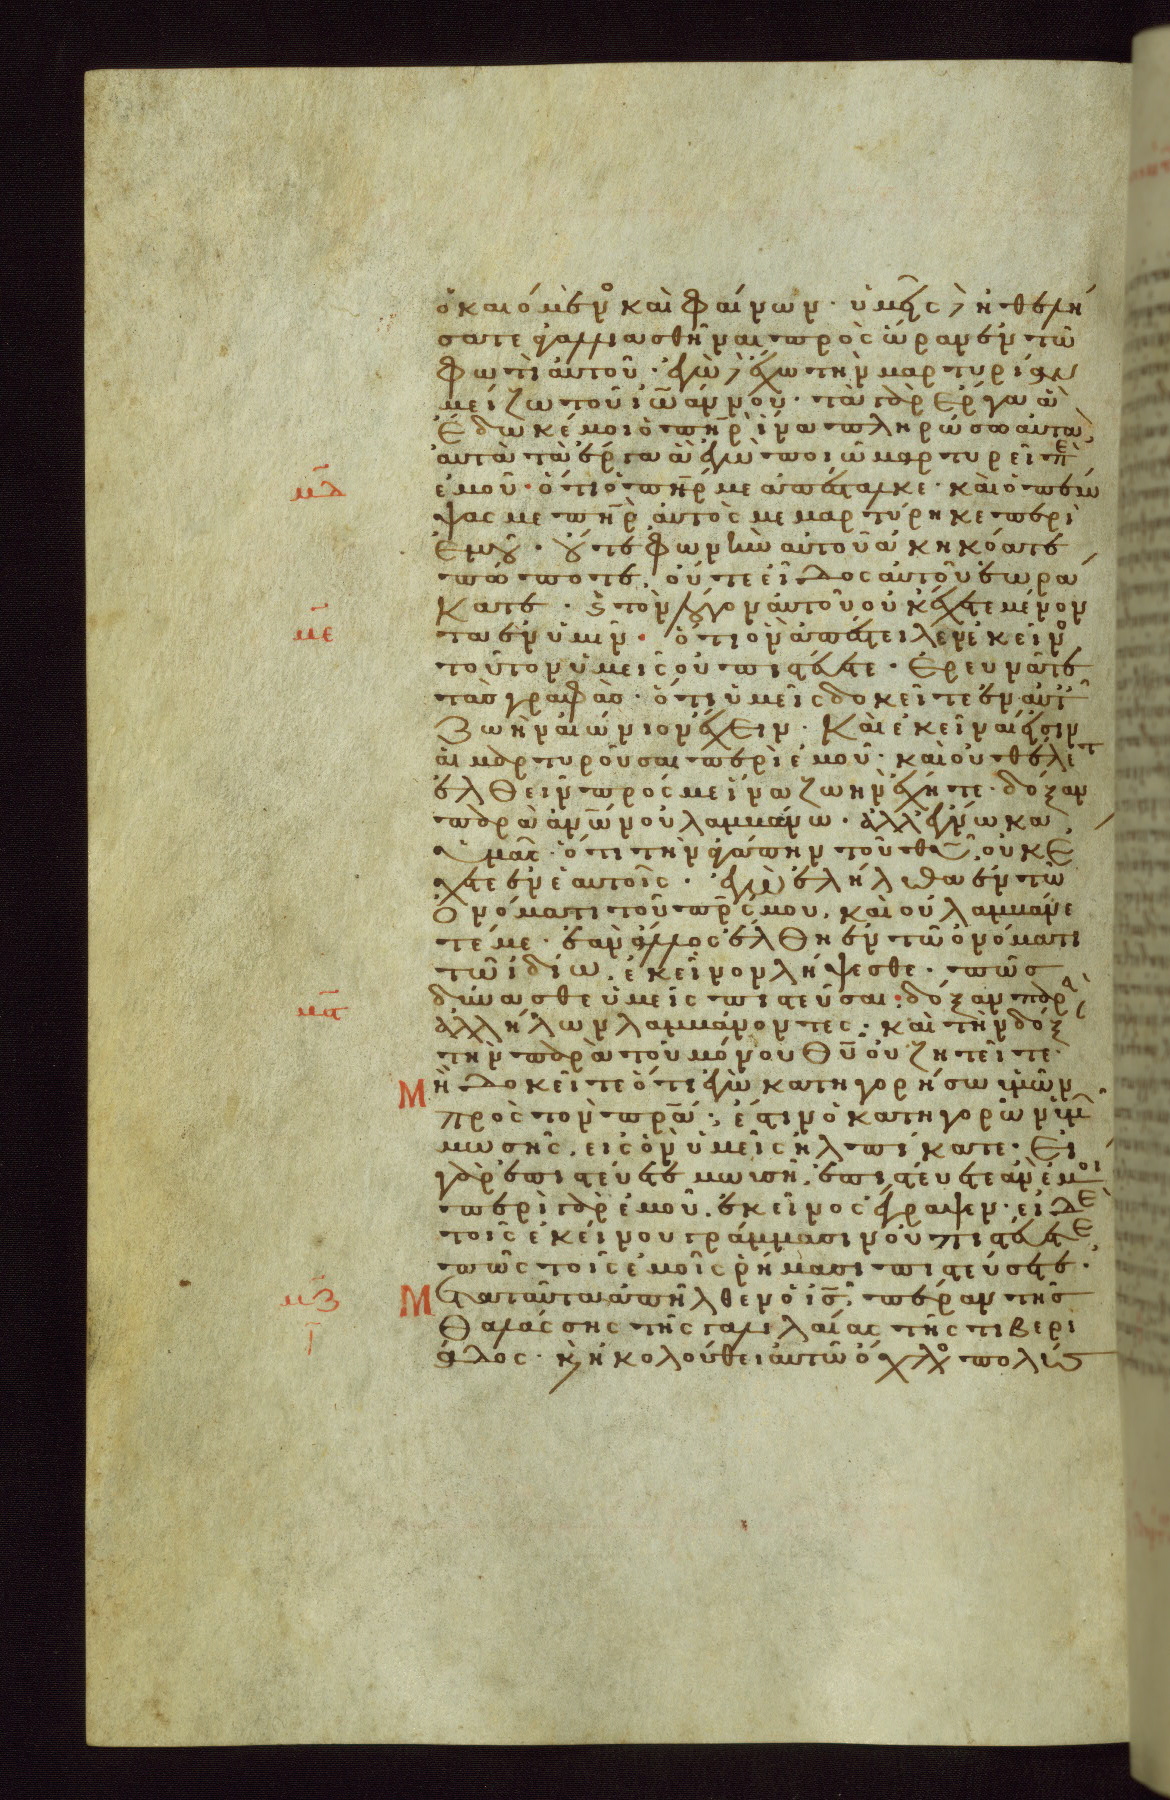 ὁ καιόμενος καὶ φαίνων · ὑμεῖς δὲ ἠθελή
σατε ἀγαλλιασθῆναι πρὸς ὥραν ἐν τῶ
φωτὶ αὐτοῦ · ἐγὼ δὲ ἔχω τὴν μαρτυρίαν
μείζω τοῦ ἰωάννου · τὰ γὰρ ἔργα ἃ
ἔδωκέ μοι ὁ πηρ ἵνα πληρώσω αὐτὰ,
αὐτὰ τὰ ἔργα ἃ ἐγὼ ποιῶ μαρτυρεῖ πε
μδ ἐμοῦ · ὅτι ὁ πηρ με ἀπέσταλκε · καὶ ὁ πέμ
ψας με πηρ αὐτὸς μεμαρτύρηκε περὶ
ἐμοῦ · οὔτε φωνὴν αὐτοῦ ἀκηκόατε
πώποτε, οὔτε εἶδος αὐτοῦ ἑωρά
με κατε · καὶ τὸν λόγον αὐτοῦ οὐκ ἔχετε μένον
τα ἐν ὑμῖν · ὅτι ὃν ἀπέστειλεν ἐκεῖνος
τοῦτον ὑμεῖς οὐ πιστεύετε · Ἐρευνᾶτε
τὰς γραφὰς · ὅτι ὑμεῖς δοκεῖτε ἐν αὐταῖς
ζωὴν αἰώνιον ἔχειν · Καὶ ἐκεῖναί εἰσιν
αἱ μαρτυροῦσαι περὶ ἐμοῦ · καὶ οὐ θέλετ
ἐλθεῖν πρός με ἵνα ζωὴν ἔχητε · δόξαν
παρὰ ἀνων οὐ λαμβάνω · ἀλλ' ἔγνωκα
ὑμᾶς · ὅτι τὴν ἀγάπην τοῦ θυ, οὐκ ἔ
χετε ἐν ἑαυτοῖς · ἐγὼ ἐλήλυθα ἐν τῶ
ὀνόματι τοῦ πρς μου, καὶ οὐ λαμβάνε
τέ με · ἐὰν ἄλλος ἔλθη ἐν τῶ ὀνόματι
τῶ ἰδίω, ἐκεῖνον λήψεσθε · πῶς
μς δύνασθε ὑμεῖς πιστεῦσαι · δόξαν παρὰ
ἀλλήλων λαμβάνοντες · καὶ τὴν δόξ
τὴν παρὰ τοῦ μόνου θυ οὐ ζητεῖτε ·
Μὴ δοκεῖτε ὅτι ἐγὼ κατηγορήσω ὑμῶν
πρὸς τὸν πρα · ἔστιν ὁ κατηγορῶν ὑμῶν
μωσῆς, εἰς ὃν ὑμεῖς ἠλπίκατε · Εἰ
γὰρ ἐπιστεύετε μωσῆ, ἐπιστεύετε ἂν ἐμοὶ
περὶ γὰρ ἐμοῦ, ἐκεῖνος ἔγραψεν · εἰ δὲ
τοῖς ἐκείνου γράμμασιν οὐ πιστεύετε,
πῶς τοῖς ἐμοῖς ῥήμασι πιστεύσετε ·
μζ Μετὰ ταῦτα ἀπῆλθεν ὁ ις, πέραν τῆς
ι θαλάσσης τῆς γαλιλαίας τῆς τιβερι
άδος · καὶ ἠκολούθει αὐτῶ ὄχλος πολὺς